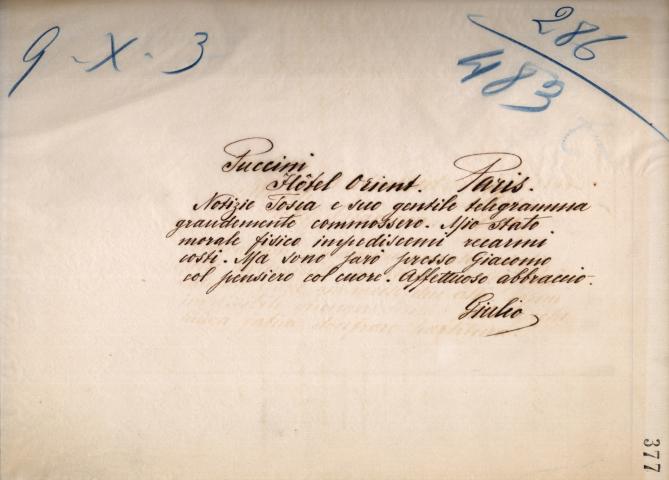 9-X-3
286
483
Puccini
Hôtel Orient. Paris.
Notizie Tosca e suo gentile telegramma
grandemente commossero. Mio stato
morale fisico impediscemi recarmi
costì. Ma sono sarò presso Giacomo
col pensiero col cuore. Affettuoso abbraccio.
Giulio
377